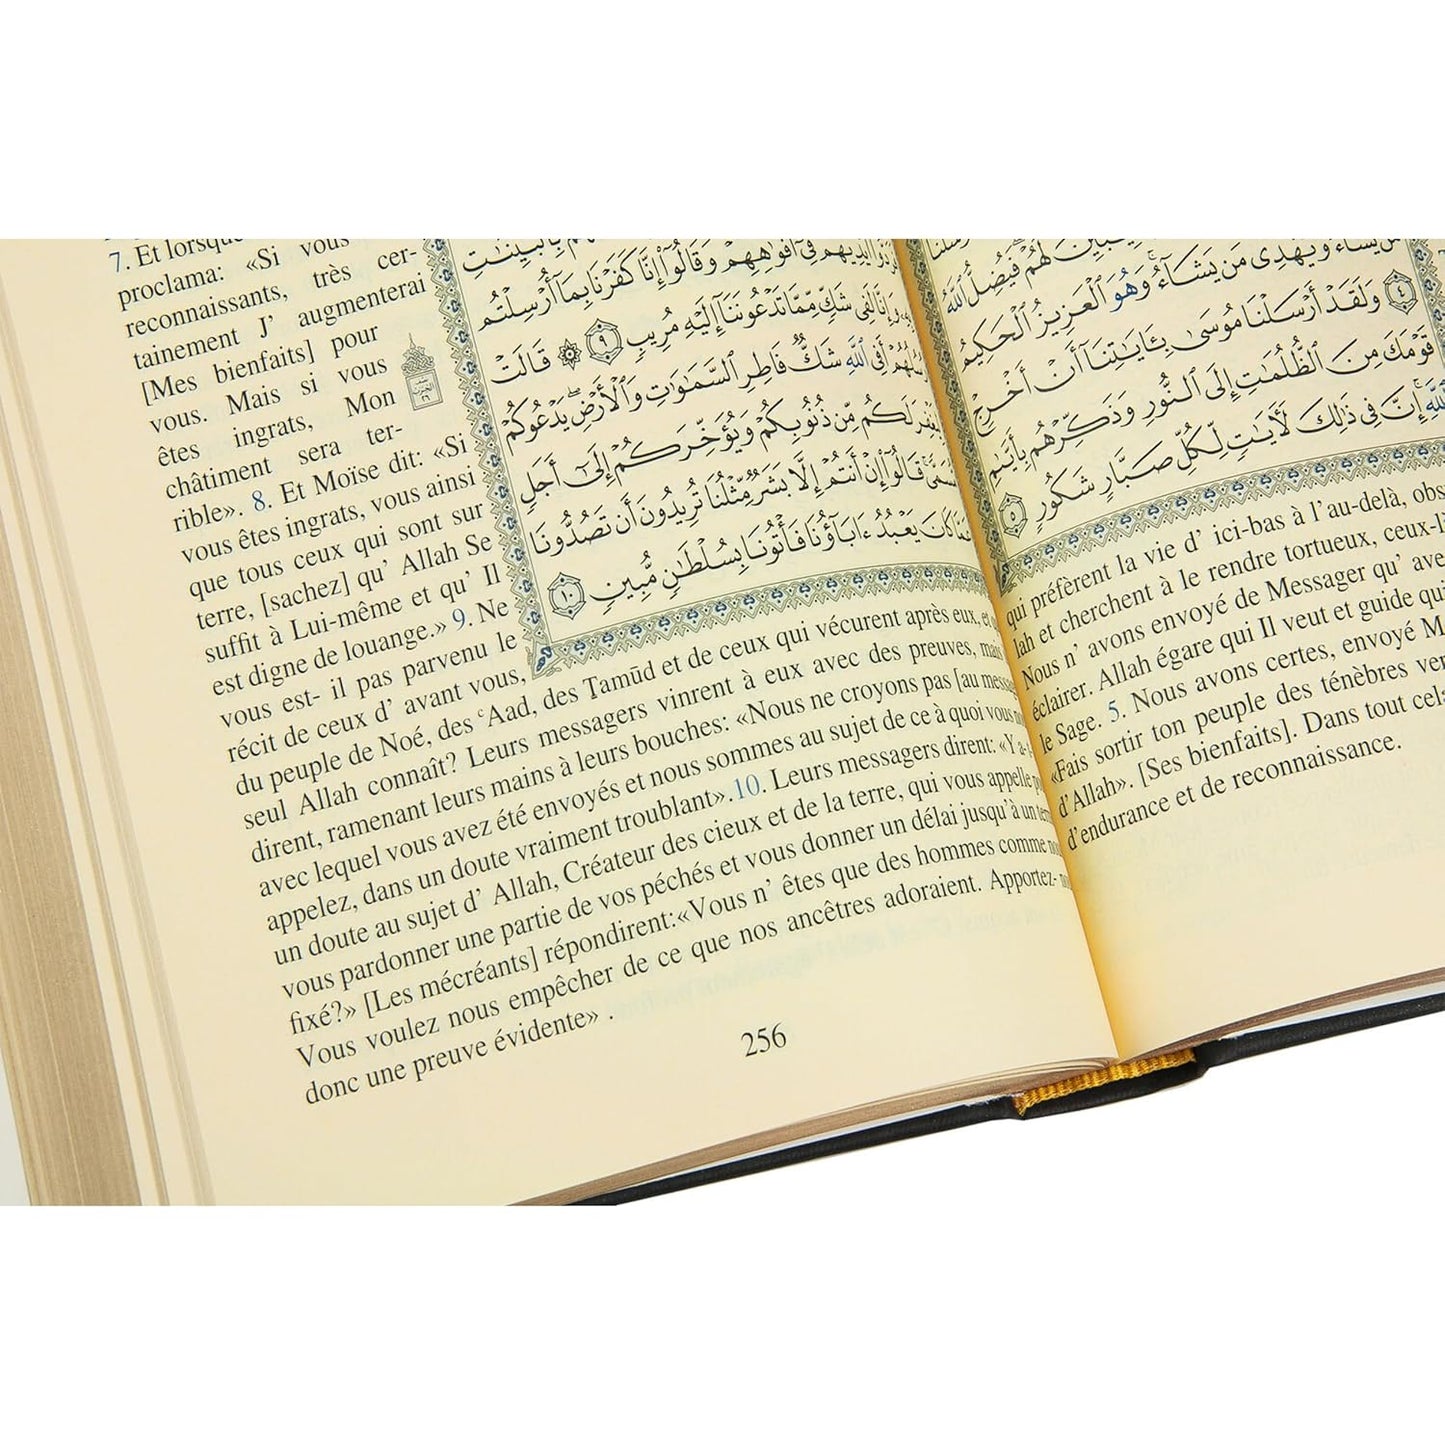 7. Et lorsque
proclama: «Si vous
reconnaissants, très cer-
tainement J’ augmenterai
[Mes bienfaits] pour
vous. Mais si vous
êtes ingrats, Mon
châtiment sera ter-
rible». 8. Et Moïse dit: «Si
vous êtes ingrats, vous ainsi
que tous ceux qui sont sur
terre, [sachez] qu’ Allah Se
suffit à Lui-même et qu’ Il
est digne de louange.» 9. Ne
vous est- il pas parvenu le
récit de ceux d’ avant vous,
du peuple de Noé, des ʿAad, des Tamūd et de ceux qui vécurent après eux, et
seul Allah connaît? Leurs messagers vinrent à eux avec des preuves, mais
dirent, ramenant leurs mains à leurs bouches: «Nous ne croyons pas [au
avec lequel vous avez été envoyés et nous sommes au sujet de ce à quoi vous
appelez, dans un doute vraiment troublant».10. Leurs messagers dirent: «Y
un doute au sujet d’ Allah, Créateur des cieux et de la terre, qui vous appelle
vous pardonner une partie de vos péchés et vous donner un délai jusqu’à un
fixé?» [Les mécréants] répondirent:«Vous n’ êtes que des hommes comme
Vous voulez nous empêcher de ce que nos ancêtres adoraient. Apportez-
donc une preuve évidente» .
256
بِالْبَيِّنَٰتِ
أَيْدِيَهُمْ فِىٓ أَفْوَٰهِهِمْ وَقَالُوٓا۟ إِنَّا كَفَرْنَا بِمَآ أُرْسِلْتُم
وَإِنَّا لَفِى شَكٍّ مِّمَّا تَدْعُونَنَآ إِلَيْهِ مُرِيبٍ ٩ ۞ قَالَتْ
رُسُلُهُمْ أَفِى ٱللَّهِ شَكٌّ فَاطِرِ ٱلسَّمَٰوَٰتِ وَٱلْأَرْضِ ۖ يَدْعُوكُمْ
لِيَغْفِرَ لَكُم مِّن ذُنُوبِكُمْ وَيُؤَخِّرَكُمْ إِلَىٰٓ أَجَلٍ
مُّسَمًّى ۚ قَالُوٓا۟ إِنْ أَنتُمْ إِلَّا بَشَرٌ مِّثْلُنَا تُرِيدُونَ أَن تَصُدُّونَا
عَمَّا كَانَ يَعْبُدُ ءَابَآؤُنَا فَأْتُونَا بِسُلْطَٰنٍ مُّبِينٍ ١٠
لَهُمْ ۖ فَيُضِلُّ ٱللَّهُ
مَن يَشَآءُ وَيَهْدِى مَن يَشَآءُ ۚ وَهُوَ ٱلْعَزِيزُ ٱلْحَكِيمُ
٤ وَلَقَدْ أَرْسَلْنَا مُوسَىٰ بِـَٔايَٰتِنَآ أَنْ أَخْرِجْ
قَوْمَكَ مِنَ ٱلظُّلُمَٰتِ إِلَى ٱلنُّورِ وَذَكِّرْهُم بِأَيَّىٰمِ
ٱللَّهِ ۚ إِنَّ فِى ذَٰلِكَ لَـَٔايَٰتٍ لِّكُلِّ صَبَّارٍ شَكُورٍ ٥
qui préfèrent la vie d’ ici-bas à l’au-delà,
lah et cherchent à le rendre tortueux,
Nous n’ avons envoyé de Messager qu’
éclairer. Allah égare qui Il veut et guide
le Sage. 5. Nous avons certes, envoyé
«Fais sortir ton peuple des ténèbres
d’Allah». [Ses bienfaits]. Dans tout
d’endurance et de reconnaissance.